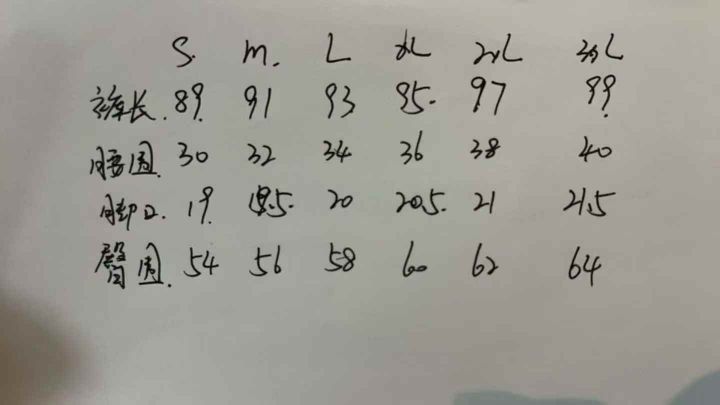 S. M. L XL 2XL 3XL
裤长. 89. 91 93 95. 97 99.
腰围. 30 32 34 36 38 40
脚口. 19. 19.5. 20 20.5. 21 21.5
臀围. 54 56 58 60 62 64